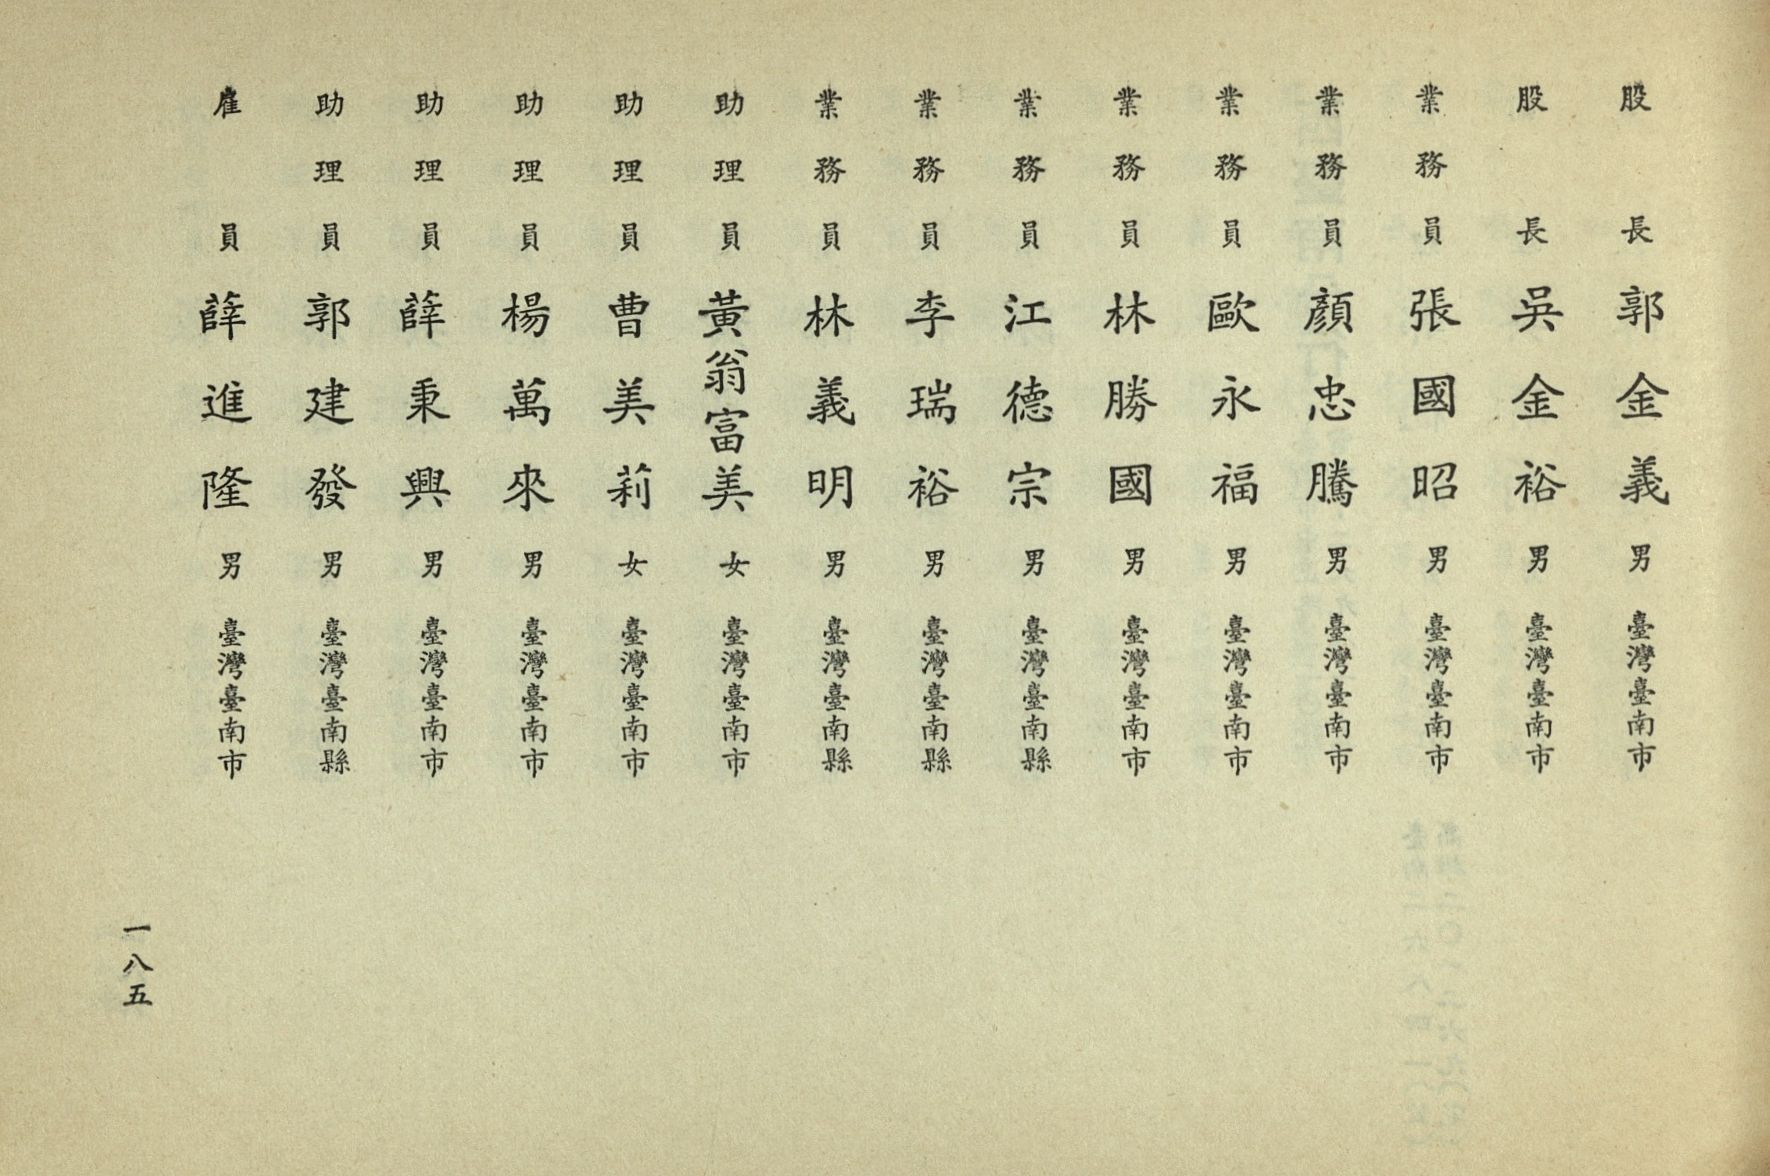 股長郭金義男臺灣臺南市
股長吳金裕男臺灣臺南市
業務員張國昭男臺灣臺南市
業務員顏忠騰男臺灣臺南市
業務員歐永福男臺灣臺南市
業務員林勝國男臺灣臺南市
業務員江德宗男臺灣臺南縣
業務員李瑞裕男臺灣臺南縣
業務員林義明男臺灣臺南縣
助理員黃翁富美女臺灣臺南市
助理員曹美莉女臺灣臺南市
助理員楊萬來男臺灣臺南市
助理員薛秉興男臺灣臺南市
助理員郭建發男臺灣臺南縣
雇員薛進隆男臺灣臺南市
一八五